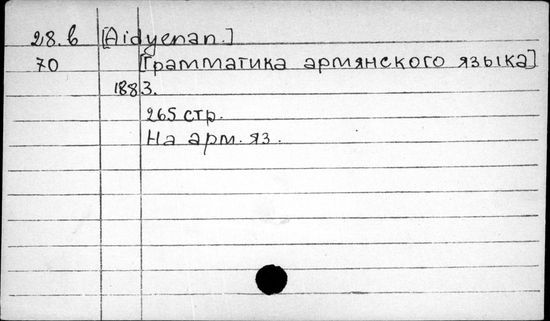 28.б [Aidyenan.]
70 [Грамматика армянского языка]
1883.
265 стр.
На арм. яз.